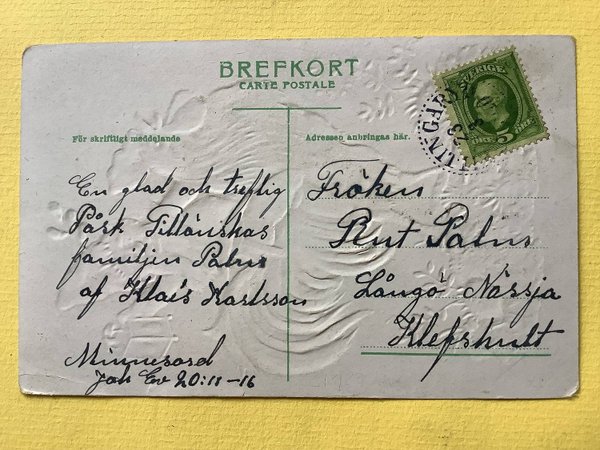 BREFKORT
CARTE POSTALE
För skriftligt meddelande
Adressen anbringas här.
SVERIGE
5
ÖRE
ÖRE
En glad och treflig
Påsk Tillönskas
familjen Palm
af Klas Karlsson
Minnesord
Joh Ev 20:11-16
Fröken
Rut Palm
Långö Nässja
Klefshult